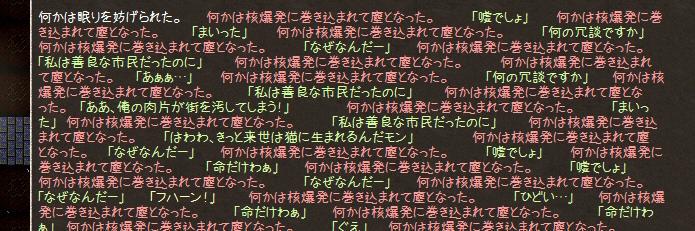 何かは眠りを妨げられた。　何かは核爆発に巻き込まれて塵となった。　「嘘でしょ」　何かは核爆発に巻
き込まれて塵となった。　「まいった」　何かは核爆発に巻き込まれて塵となった。　「何の冗談ですか」
何かは核爆発に巻き込まれて塵となった。　「なぜなんだー」　何かは核爆発に巻き込まれて塵となった。
「私は善良な市民だったのに」　何かは核爆発に巻き込まれて塵となった。　何かは核爆発に巻き込まれ
て塵となった。　「あぁぁ…」　何かは核爆発に巻き込まれて塵となった。　「何の冗談ですか」　何かは核
爆発に巻き込まれて塵となった。　「私は善良な市民だったのに」　何かは核爆発に巻き込まれて塵とな
った。　「ああ、俺の肉片が街を汚してしまう！」　何かは核爆発に巻き込まれて塵となった。　「まいっ
た」　何かは核爆発に巻き込まれて塵となった。　「私は善良な市民だったのに」　何かは核爆発に巻き込
まれて塵となった。　「はわわ、きっと来世は猫に生まれるんだモン」　何かは核爆発に巻き込まれて塵
となった。　「なぜなんだー」　何かは核爆発に巻き込まれて塵となった。　「嘘でしょ」　何かは核爆発に
巻き込まれて塵となった。　「命だけわぁ」　何かは核爆発に巻き込まれて塵となった。　「嘘でしょ」
何かは核爆発に巻き込まれて塵となった。　「なぜなんだー」　何かは核爆発に巻き込まれて塵となった。
「なぜなんだー」　「フハーン！」　何かは核爆発に巻き込まれて塵となった。　「ひどい…」　何かは核爆
発に巻き込まれて塵となった。　「命だけわぁ」　何かは核爆発に巻き込まれて塵となった。　「命だけわ
ぁ」　何かは核爆発に巻き込まれて塵となった。　「ぐえ」　何かは核爆発に巻き込まれて塵となった。